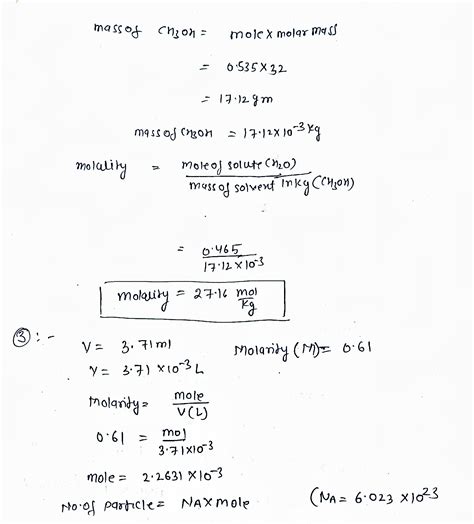 mass of CH3OH = mole x molar mass
= 0.535 x 32
= 17.12 gm
mass of CH3OH = 17.12 x 10-3 kg
molality = mole of solute (H2O)
mass of solvent in kg (CH3OH)
= 0.465
17.12 x 10-3
molality = 27.16 mol
kg
③ :-
V = 3.71 ml Molarity (M) = 0.61
V = 3.71 x 10-3 L
Molarity = mole
V(L)
0.61 = mol
3.71 x 10-3
mole = 2.2631 x 10-3
No. of particle = NA x mole (NA = 6.023 x 10 23